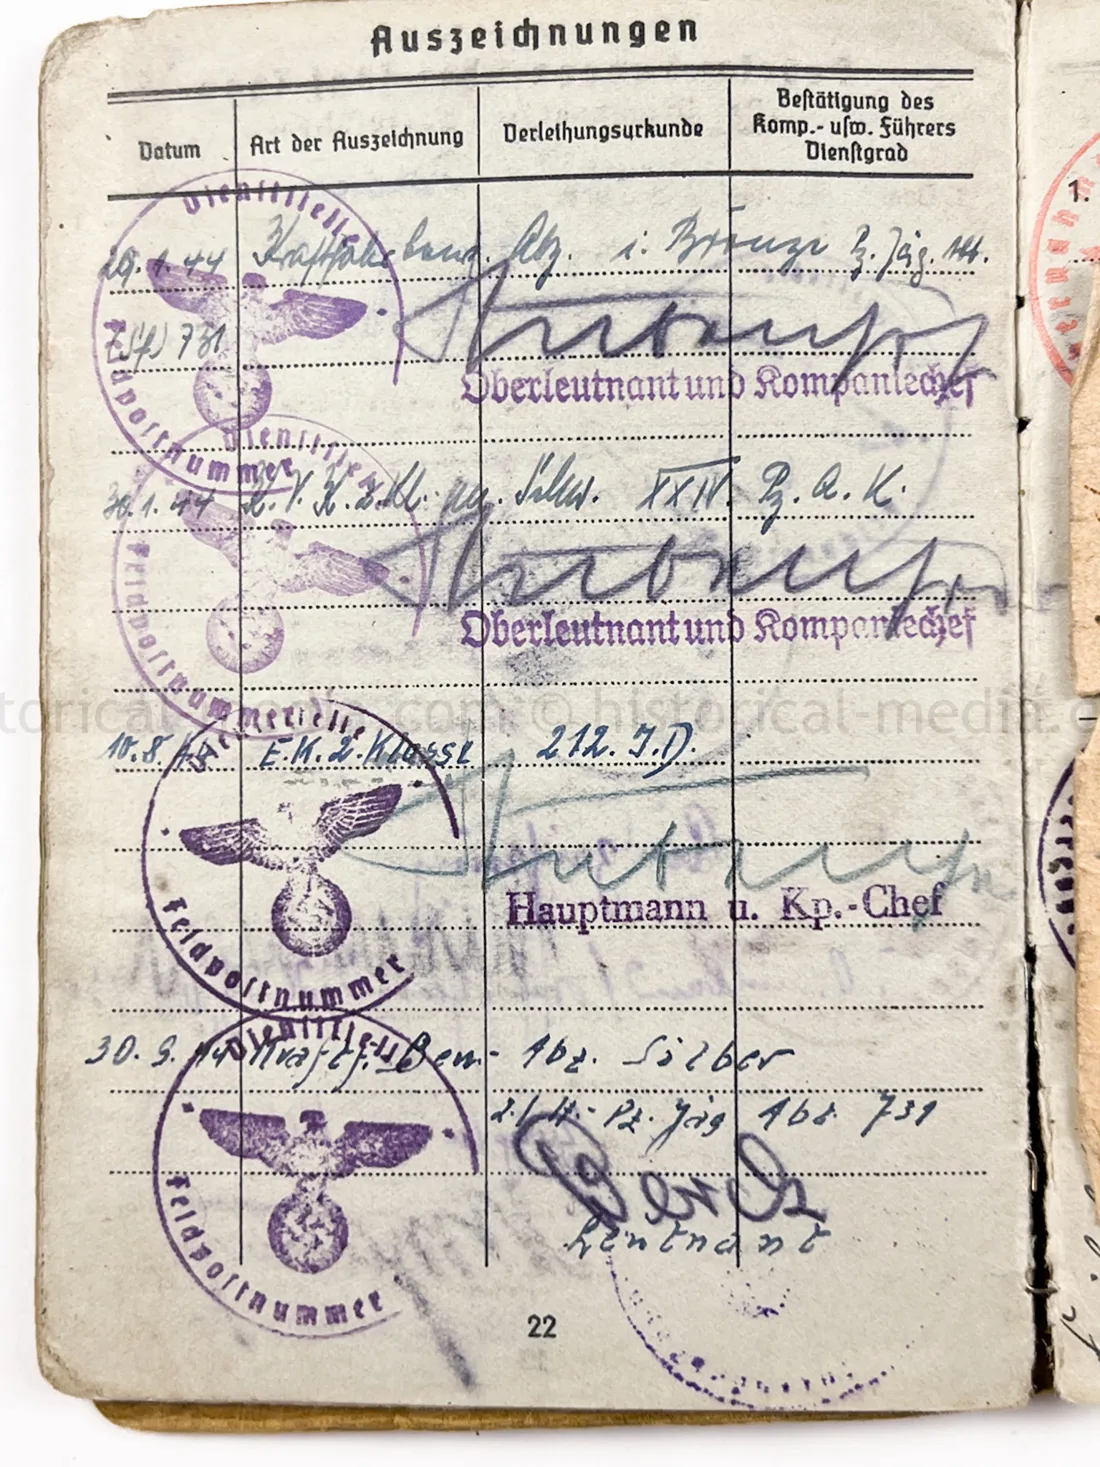 Auszeichnungen
Datum
Art der Auszeichnung
Verleihungsurkunde
Bestätigung des
Komp.- usw. Führers
Dienstgrad
1.
Dienststelle
29.1.44 Kraftfahrbew. Abz. i. Bronze Pz. Jäg. Abt.
(Sfl) 731
Feldpostnummer
Oberleutnant und Kompaniechef
Dienststelle
30.1.44 K.V.K. 2. Kl. m. Schw. XXIV. Pz. A. K.
Feldpostnummer
Oberleutnant und Kompaniechef
historical-media.com © historical-media.
10.8.44 E.K. 2. Klasse 212. I.D.
Feldpostnummer
Hauptmann u. Kp.-Chef
Dienststelle
30.9.44 Kraftf. Bew- Abz. Silber
Pz. Jäg Abt 731
Feldpostnummer
Leutnant
22